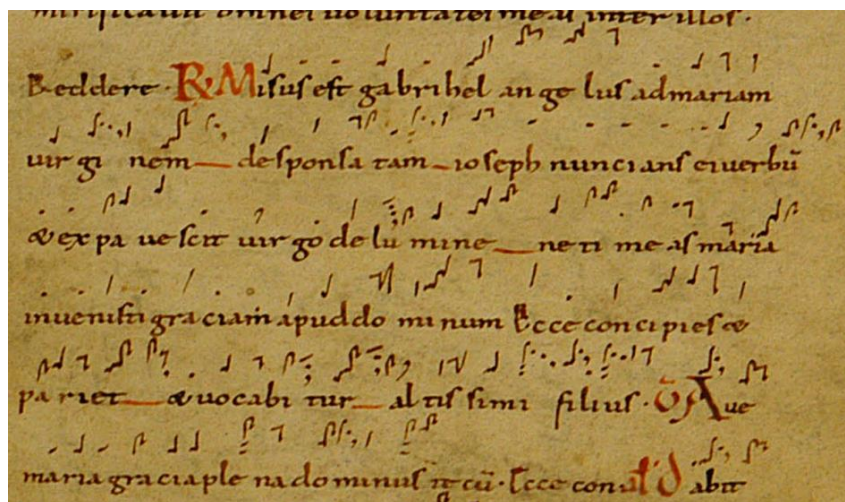 mirificavit omnes voluntates meas inter illos.
Reddere. R Misus est gabrihel angelus ad mariam
virginem desponsatam ioseph nuncians ei verbū
& expavescit virgo de lumine ne timeas maria
invenisti graciam apud dominum Ecce concipies &
pariet & vocabitur altissimi filius. V Ave
maria gracia plena dominus cū. Ecce con abit